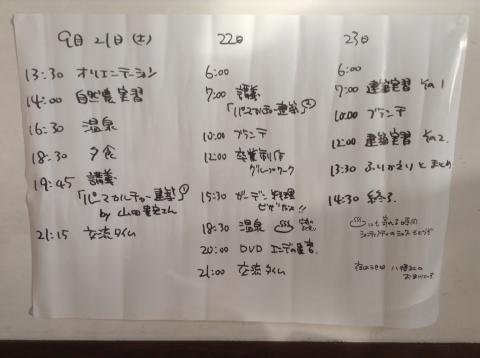 9月21日(土)
13:30 オリエンテーション
14:00 自然農実習
16:30 温泉
18:30 夕食
19:45 講義
「パーマカルチャー建築」①
by 山田貴宏さん
21:15 交流タイム
22日
6:00
7:00 講義
「パーマカルチャー建築」②
10:00 ブランチ
12:00 卒業制作
グループワーク
15:30 ガーデン料理
ピザ
18:30 温泉
20:00 DVD エンデの遺言
21:00 交流タイム
23日
6:00
7:00 建築実習 その1
10:00 ブランチ
12:00 建築実習 その2.
13:30 ふりかえりとまとめ
14:30 終了.